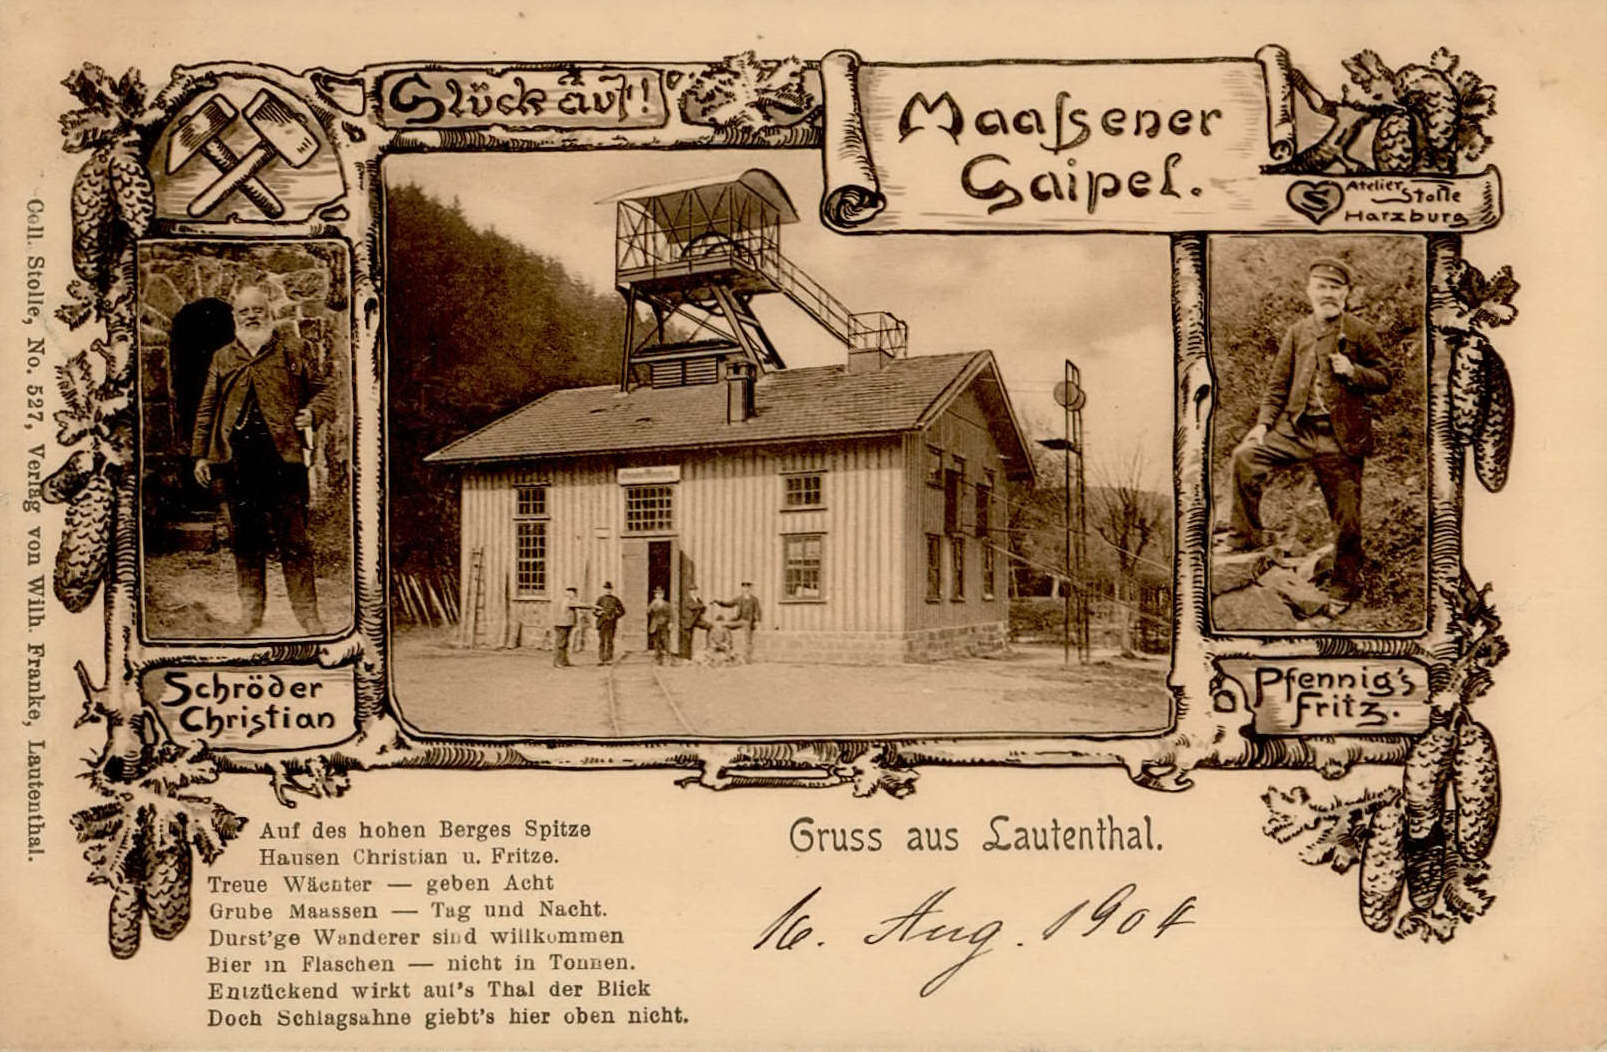 Glück auf!
Maaſsener
Gaipel.
Atelier
Stolle
Harzburg
S
Schröder
Christian
Pfennig's
Fritz.
Coll. Stolle, No. 527, Verlag von Wilh. Franke, Lautenthal.
Auf des hohen Berges Spitze
Hausen Christian u. Fritze.
Treue Wächter — geben Acht
Grube Maassen — Tag und Nacht.
Durst'ge Wanderer sind willkommen
Bier in Flaschen — nicht in Tonnen.
Entzückend wirkt auf's Thal der Blick
Doch Schlagsahne giebt's hier oben nicht.
Gruss aus Lautenthal.
16. Aug. 1904